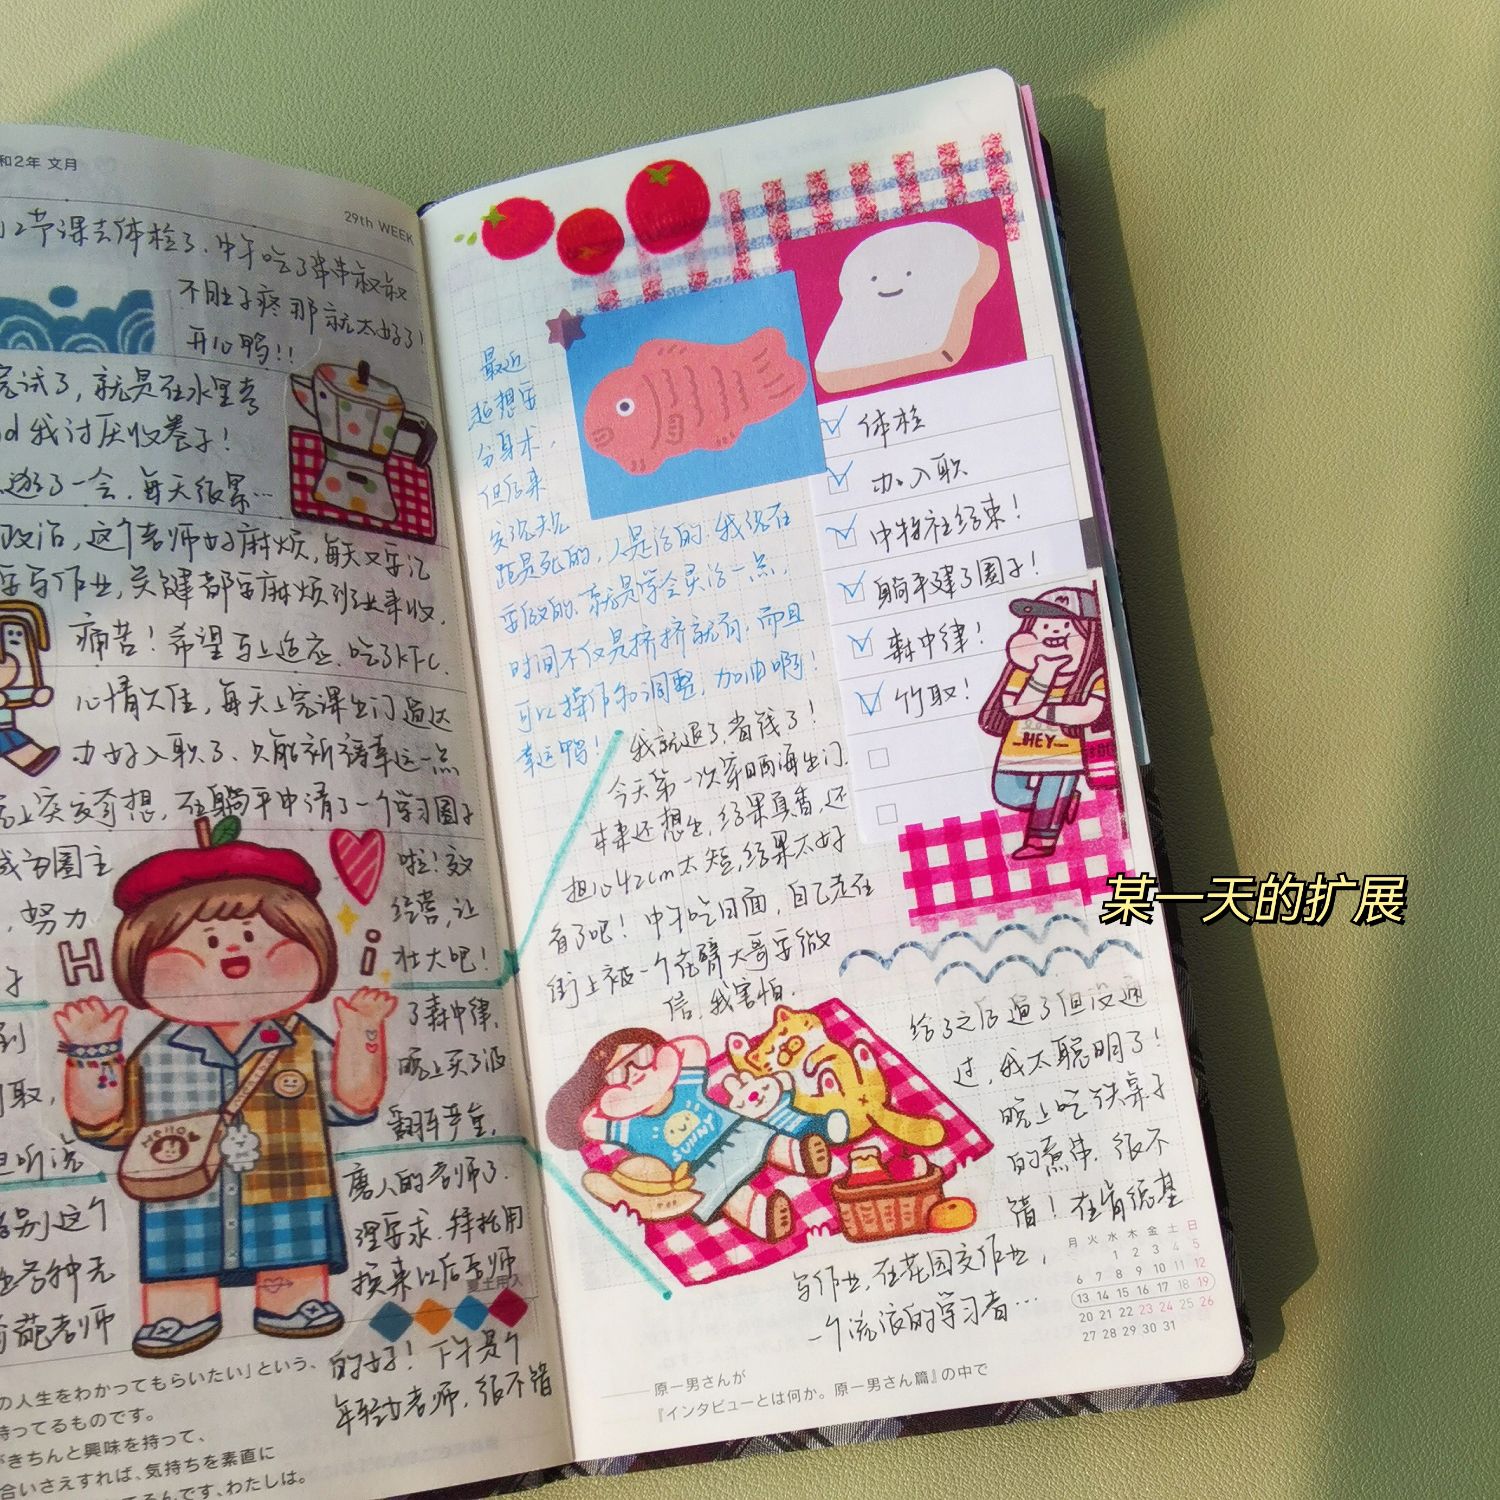 和2年 文月
29th WEEK
12节课去体检了.中午吃了串串叔叔
不肚子疼那就太好了!
开心鸭!!
完试了,就是在水里考
我讨厌收卷子!
逛了一会.每天很累…
政治,这个老师好麻烦,每天又要记
要写作业,关键都要麻烦班出来收.
痛苦!希望马上适应.吃了KFC.
心情欠佳,每天上完课出门遛达
办好入职了.只能祈祷幸运一点
上突发奇想,在躺平申请了一个学习圈子
成为圈主
啦!效
,努力
经营,让
壮大吧!
Hi
了森中律.
晚上买了酒
取,
翻车芦笙,
但听说
磨人的老师了.
别这个
理要求.拜托用
各种无
换来以后老师
老师
的好!下午是个
年轻女老师.很不错
HELLO
の人生をわかってもらいたい」という、
持ってるものです。
がきちんと興味を持って、
合いさえすれば、気持ちを素直に
るんです、わたしは。
最近
超想要
分身术,
但后来
发现规
距是死的,人是活的.我现在
要做的.就是学会灵活一点.
时间不仅是挤挤就有.而且
可以操作和调整.加油啊!
幸运鸭!
体检
办入职
中特社结束!
躺平建了圈子!
森中律!
竹取!
HEY
我就退了,省钱了!
今天第一次穿日西海出门.
本来还想出,结果真香,还
担心42cm太短,结果太好
看了吧!中午吃日面,自己走在
街上被一个花臂大哥要微
信,我害怕.
SUNNY
给了之后通了但没通
过,我太聪明了!
晚上吃铁桌子
的煮串.很不
错!在肯德基
写作业,在花园交作业,
一个流浪的学习者…
月 火 水 木 金 土 日
1 2 3 4 5
6 7 8 9 10 11 12
13 14 15 16 17 18 19
20 21 22 23 24 25 26
27 28 29 30 31
原一男さんが
『インタビューとは何か。原一男さん篇』の中で
某一天的扩展